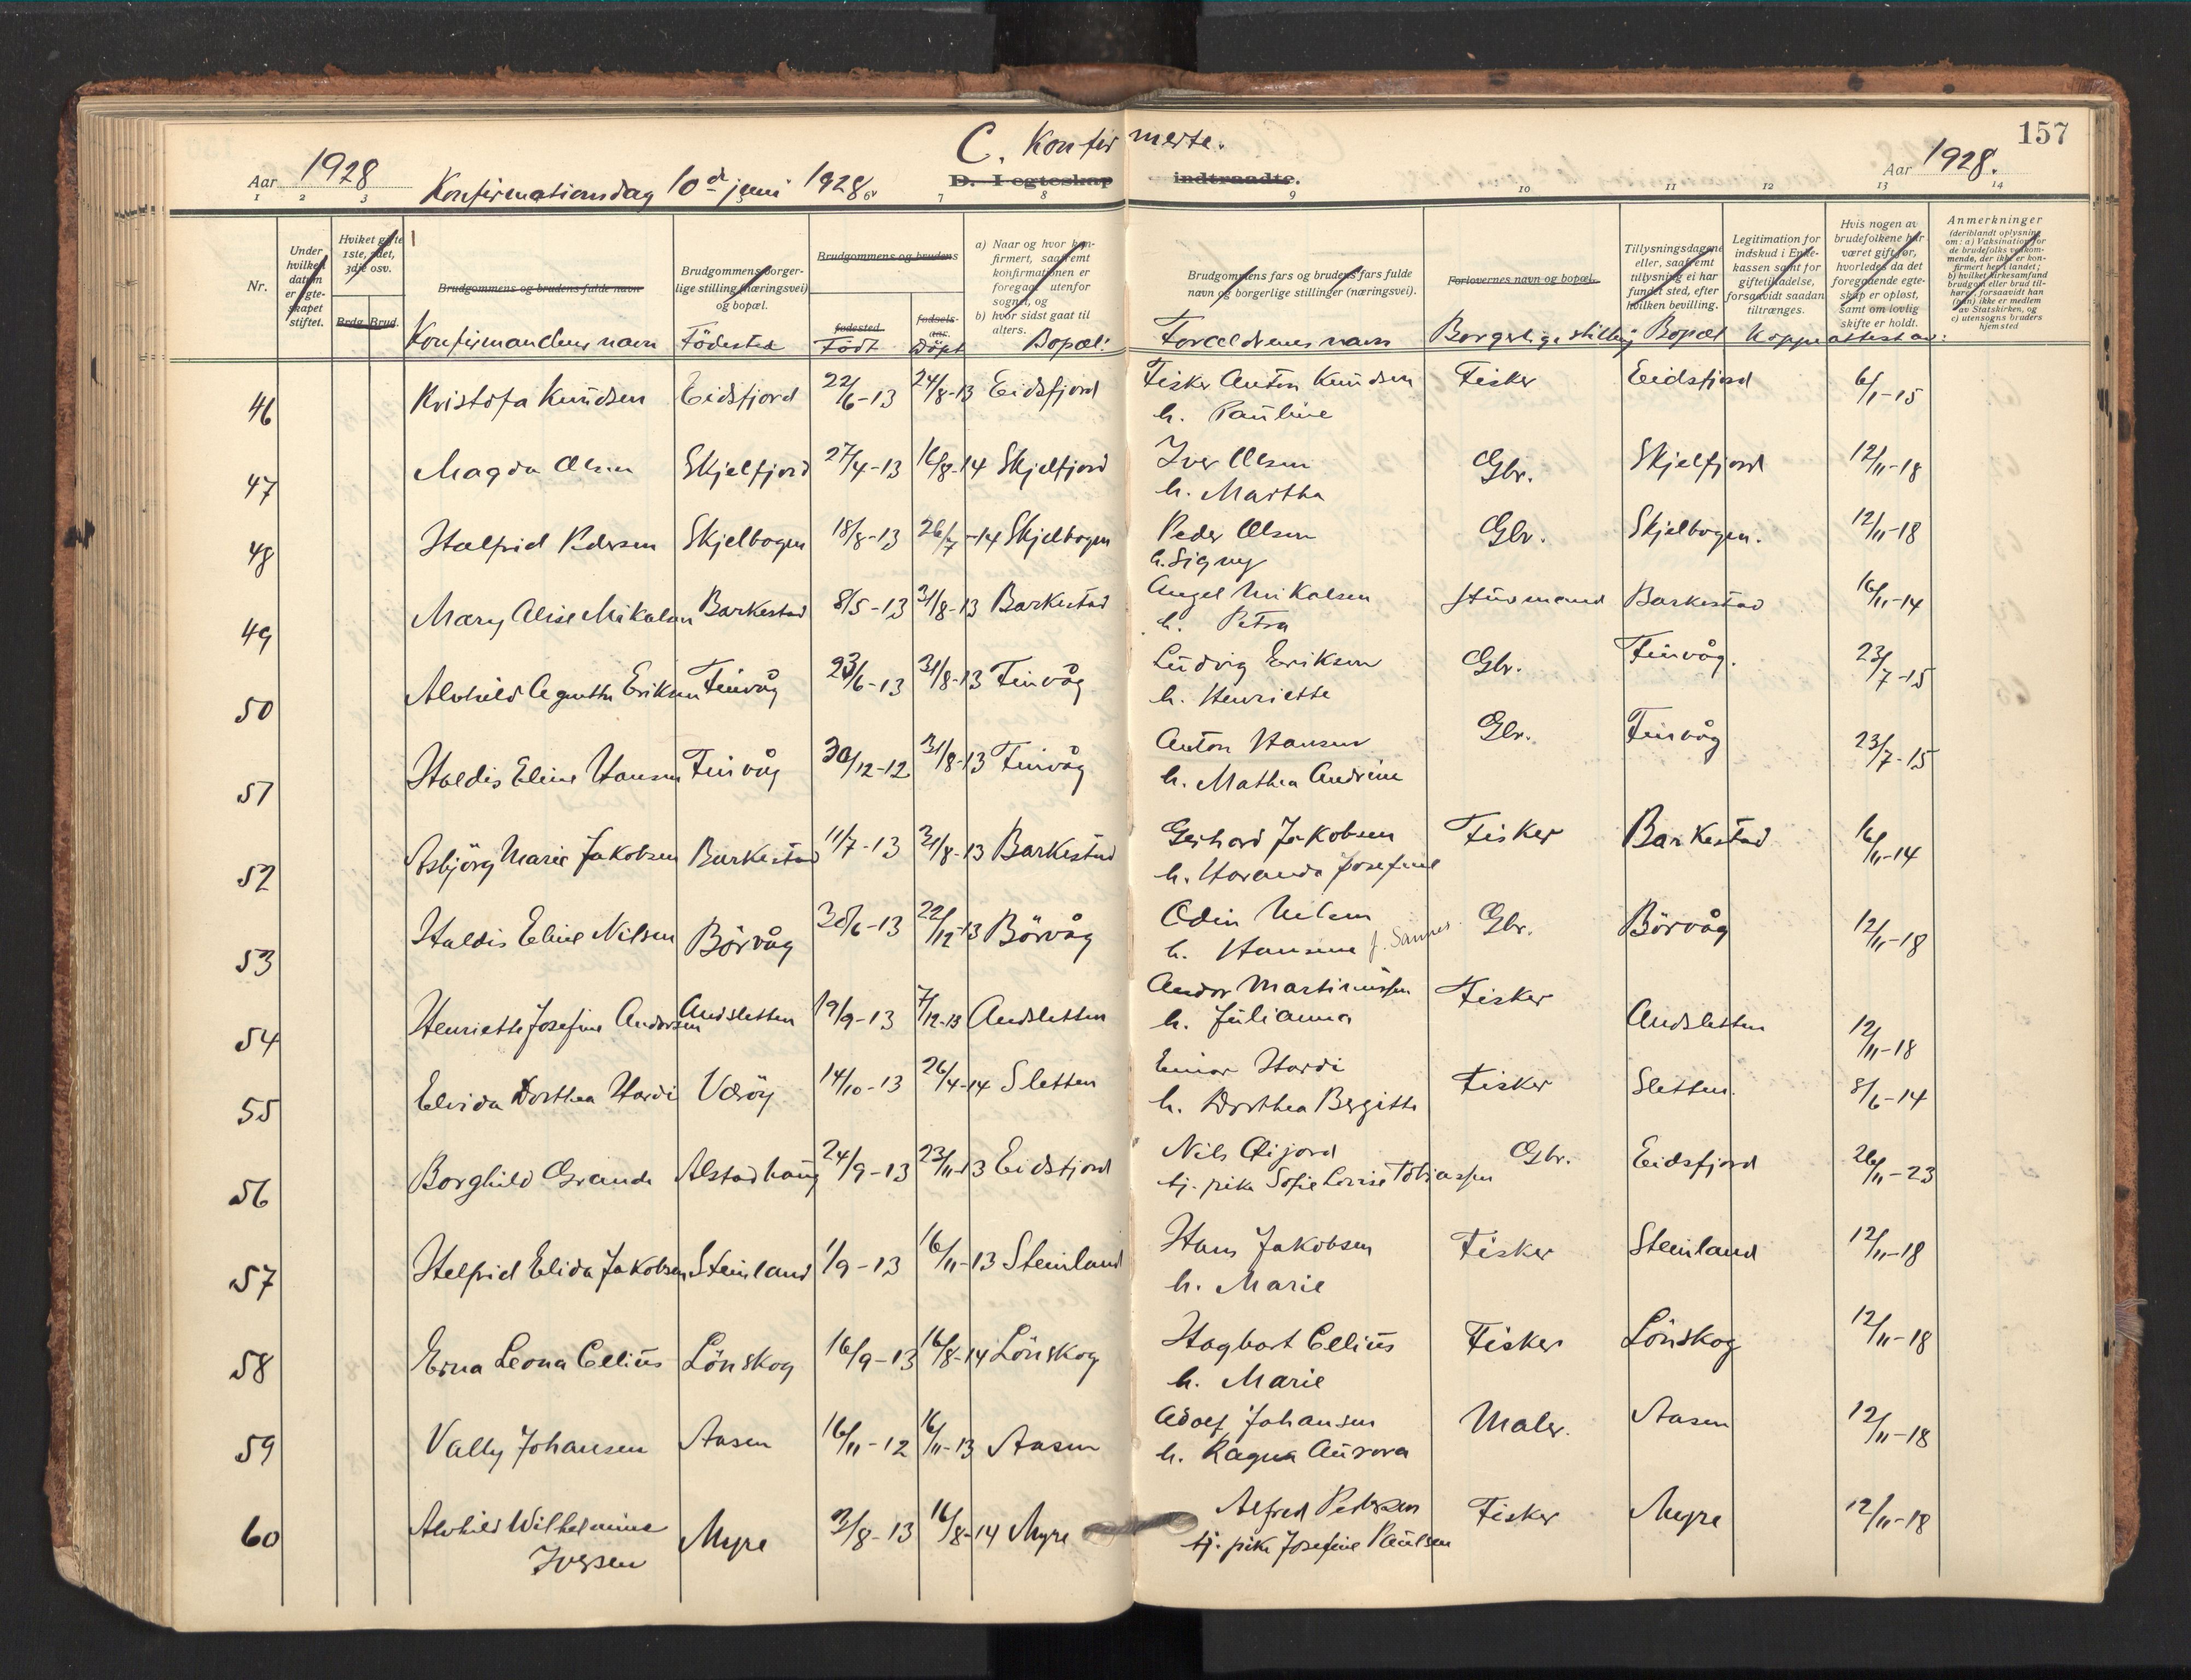 C. Konfirmerte.
157
Aar 1928 Konfirmationsdag 10de juni 1928. D. I egteskap indtraadte. Aar 1928.
1 2 3 6 7 8 9 10 11 12 13 14
Nr.
Under hvilken datum er egteskapet stiftet.
Hvilket gifte 1ste, 2det, 3dje osv.
Brdg. Brud.
Brudgommens og brudens fulde navn
Konfirmandens navn
Brudgommens borgerlige stilling (næringsvei) og bopæl.
Födested
Brudgommens og brudens
fødested.
Födt
fødselsaar.
Döpt
a) Naar og hvor konfirmert, saafremt konfirmationen er foregaat utenfor sognet, og
b) hvor sidst gaat til alters.
Bopæl:
Brudgommens fars og brudens fars fulde navn og borgerlige stillinger (næringsvei).
Forældrenes navn
Forlovernes navn og bopæl.
Borgerlige stilling
Tillysningsdagene eller, saafremt tillysning ei har fundet sted, efter hvilken bevilling.
Bopæl
Legitimation for indskud i Enkekassen samt for giftetilladelse, forsaavidt saadan tiltrænges.
Koppeattest av:
Hvis nogen av brudefolkene har været gift før, hvorledes da det foregaaende egteskap er opløst, samt om lovlig skifte er holdt.
Anmerkninger
(deriblandt oplysning om: a) Vaksination for de brudefolks vedkommende, der ikke er konfirmert her i landet; b) hvilket kirkesamfund brudgom eller brud tilhører, forsaavidt han (hun) ikke er medlem av Statskirken, og c) utensogns bruders hjemsted
46 Kristofa Knudsen Eidsfjord 22/6-13 24/8-13 Eidsfjord Fisker Anton Knudsen Fisker Eidsfjord 6/1-15
h. Pauline
47 Magda Olsen Skjelfjord 27/4-13 16/8-14 Skjelfjord Iver Olsen Gbr. Skjelfjord 12/11-18
h. Martha
48 Halfrid Pedersen Skjelbogen 18/8-13 26/7-14 Skjelbogen Peder Olsen Gbr. Skjelbogen. 12/11-18
h. Signy
49 Mary Alise Mikalsen Barkestad 8/5-13 31/8-13 Barkestad Angel Mikalsen Stuvmand Barkestad 16/11-14
h. Petra
50 Alvhild Agnethe Eriksen Finvåg 23/6-13 31/8-13 Finvåg Ludvig Eriksen Gbr. Finvåg. 23/7-15
h. Henriette
51 Haldis Eline Hansen Finvåg 30/12-12 31/8-13 Finvåg Anton Hansen Gbr. Finvåg 23/7-15
h. Mathea Andrine
52 Asbjörg Marie Jakobsen Barkestad 11/7-13 31/8-13 Barkestad Gerhard Jakobsen Fisker Barkestad 16/11-14
h. Haranda Josefine
53 Haldis Eline Nilsen Börvåg 30/6-13 22/12-13 Börvåg Odin Nilsen Gbr. Börvåg 12/11-18
h. Hansine f. Sannes.
54 Henriette Josefine Andorsen Andsletten 19/9-13 7/12-13 Andsletten Andor Martinussen Fisker Andsletten 12/11-18
h. Julianna
55 Elvida Dorthea Hardi Væröy 14/10-13 26/4-14 Sletten Einar Hardi Fisker Sletten. 8/6-14
h. Dorthea Bergitte
56 Borghild Grande Alstadhaug 24/9-13 23/11-13 Eidsfjord Nils Gijord Gbr. Eidsfjord 26/11-23
tj. pike Sofie Lovise Tobiassen
57 Helfrid Elida Jakobsen Steinland 1/9-13 16/11-13 Steinland Hans Jakobsen Fisker Steinland 12/11-18
h. Marie
58 Erna Leona Celius Lönskog 16/9-13 16/8-14 Lönskog Hagbart Celius Fisker Lönskog 12/11-18
h. Marie
59 Vally Johansen Aasen 16/11-12 16/11-13 Aasen Adolf Johansen Maler. Aasen 12/11-18
h. Ragna Aurora
60 Alvhild Wilhelmine Myre 3/8-13 16/8-14 Myre Alfred Pedersen Fisker Myre 12/11-18
Iversen tj. pike Josefine Paulsen